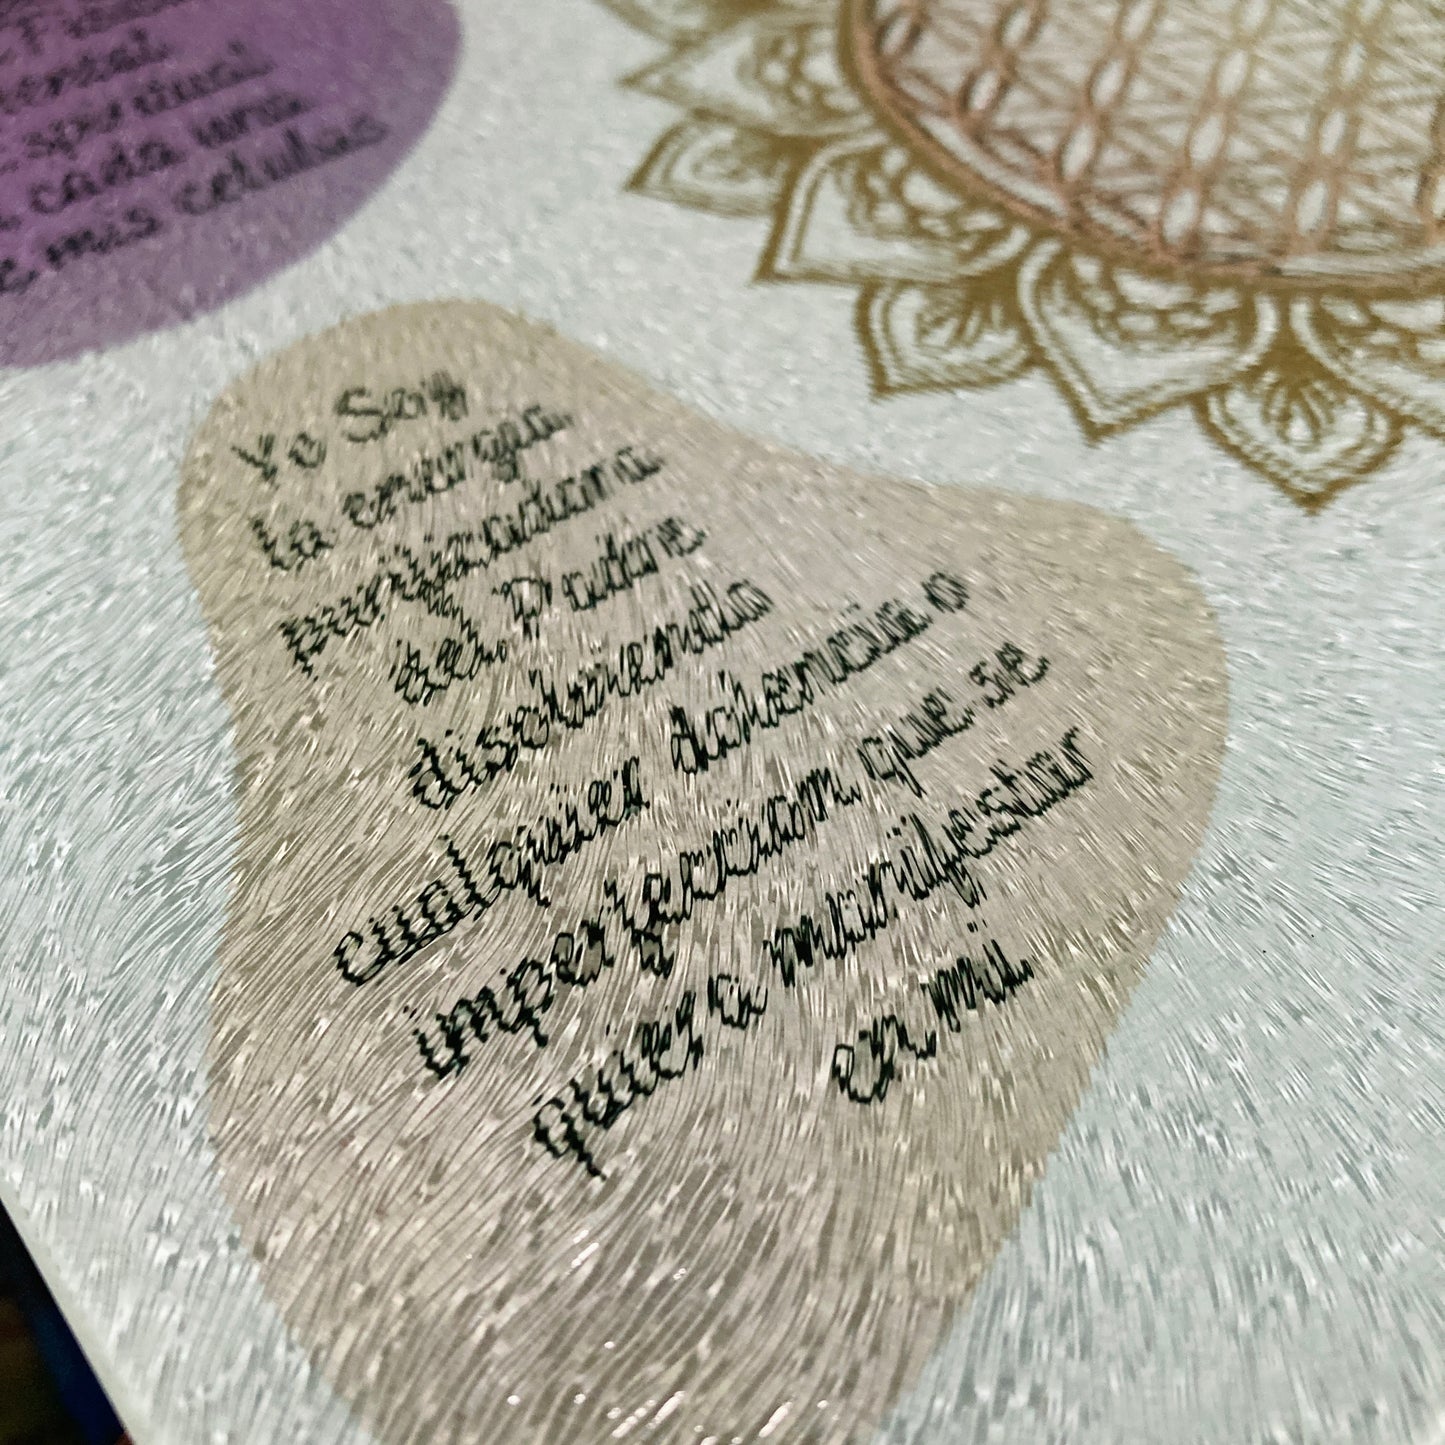 mental
cada una
mis celulas
Yo Soy
la energia
purificadora
del Padre
disolviendo
cualquier dolencia o
imperfeccion que se
quiera manifestar
en mi.